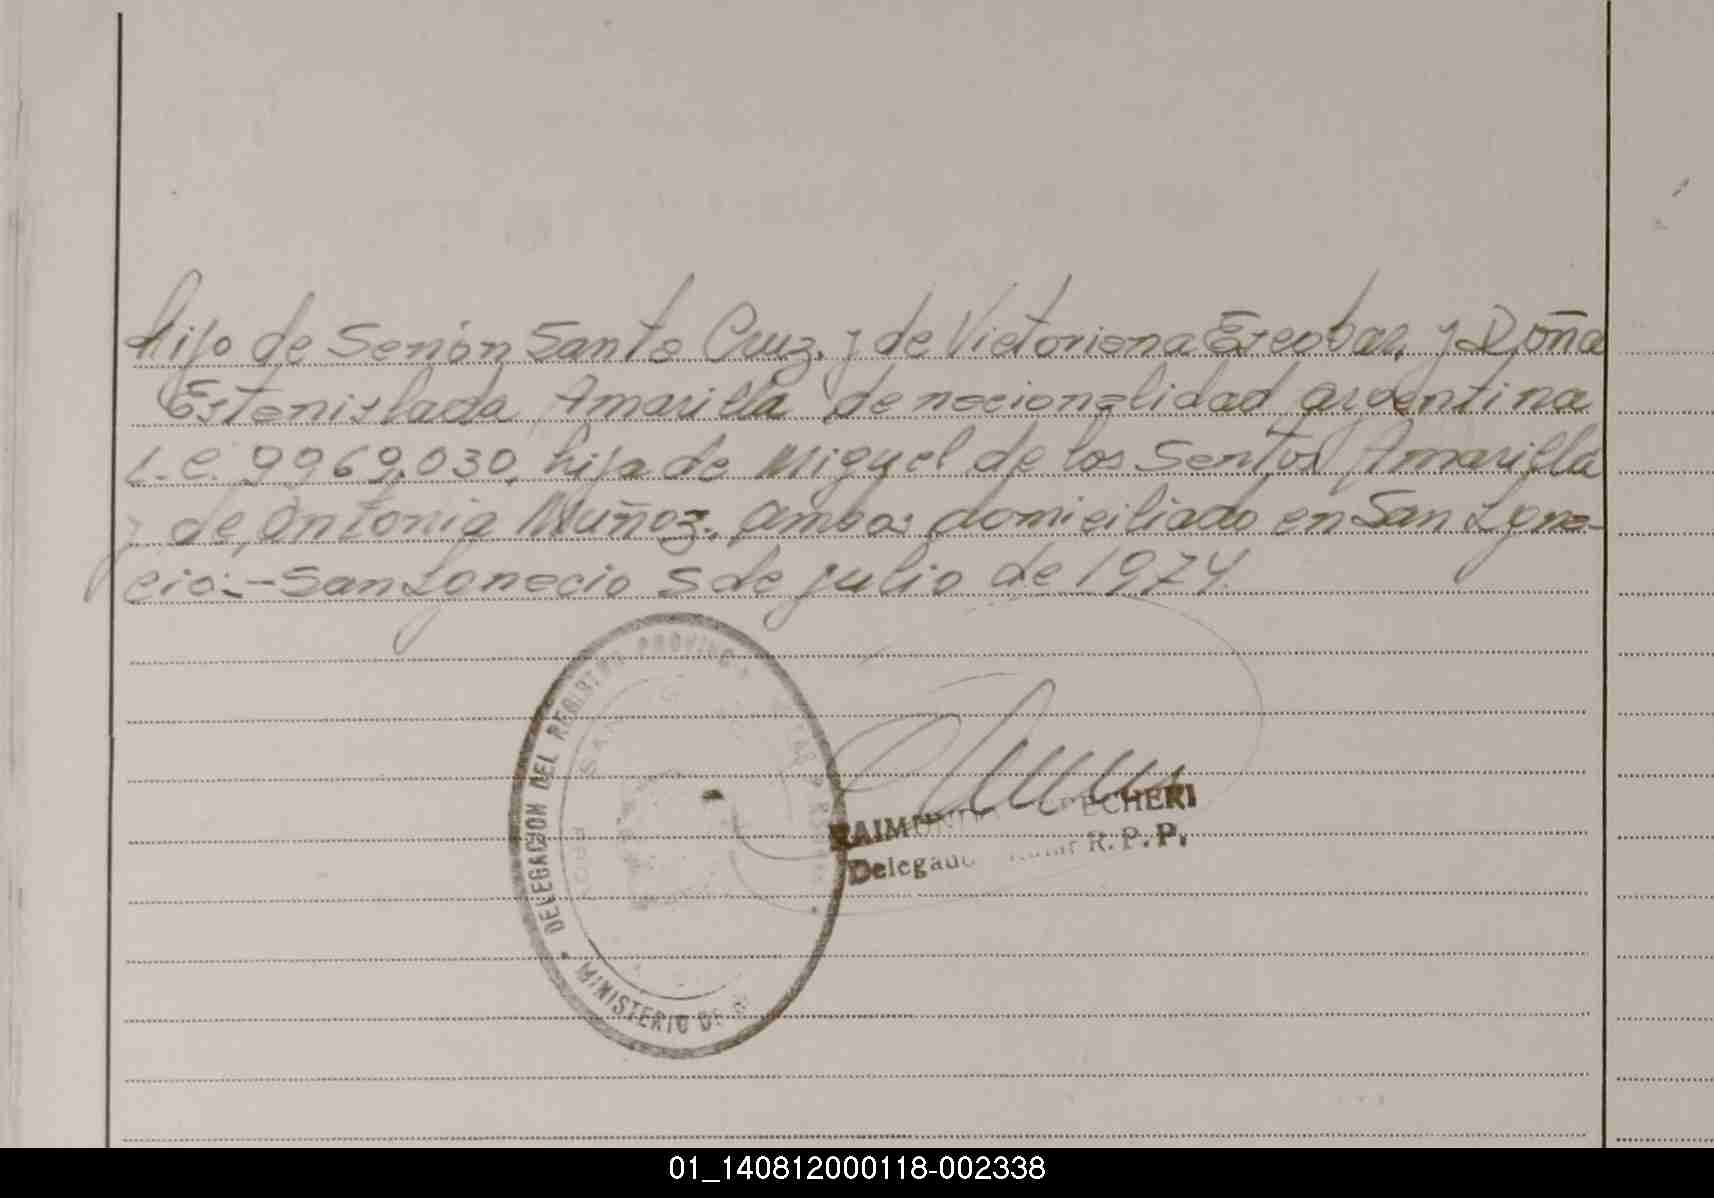 hijo de Senón Santa Cruz, y de Victoriana Escobar, y Doña
Estanislada Amarilla de nacionalidad argentina
L.C. 9969.030, hija de Miguel de los Santos Amarilla
y de Antonia Muñoz. ambos domiciliado en San Igna-
cio.- San Ignacio 5 de julio de 1974.
DELEGACION DEL REGISTRO PROVINC
MINISTERIO DE
SAN
RAIMUN PECHERI
Delegado R.P.P.
01_140812000118-002338